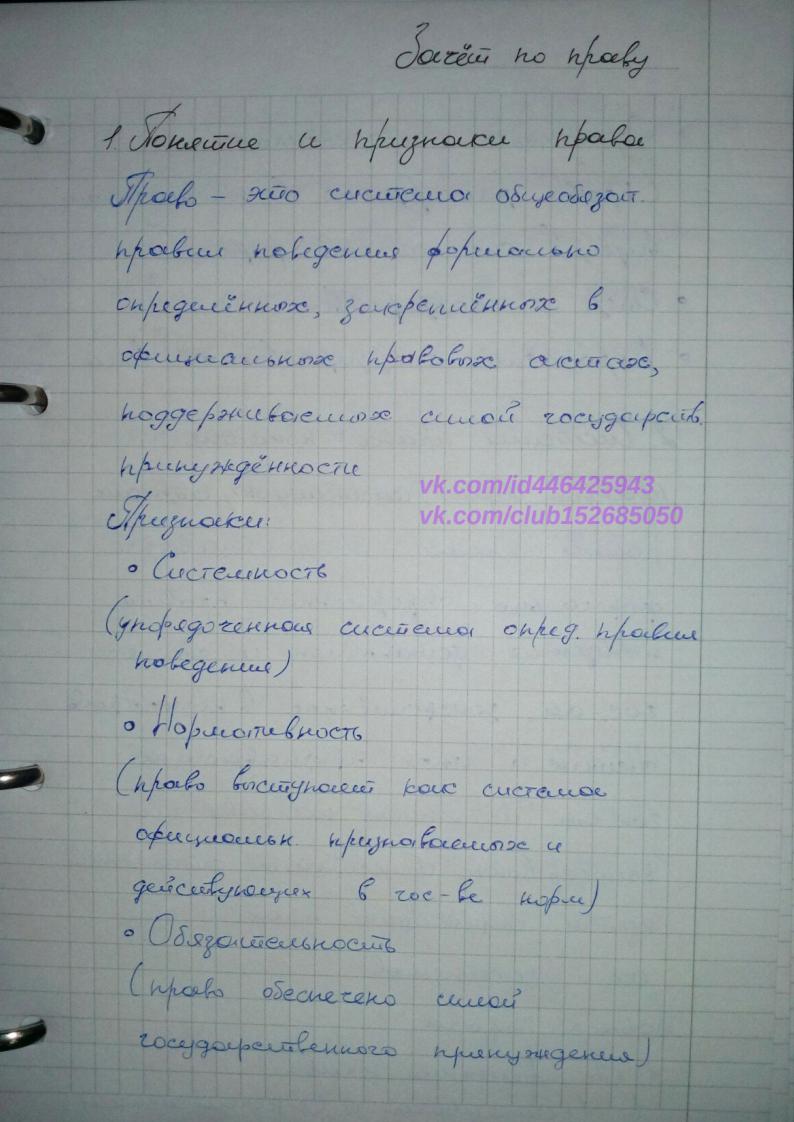 Зачёт по праву
1. Понятие и признаки права
Право – это система общеобязат.
правил поведения формально
определённых, закреплённых в
официальных правовых актах,
поддерживаемых силой государств.
принуждённости
vk.com/id446425943
vk.com/club152685050
Признаки:
• Системность
(упорядоченная система опред. правил
поведения)
• Нормативность
(право выступает как система
официальн. признаваемых и
действующих в гос-ве норм)
• Обязательность
(право обеспечено силой
государственного принуждения)